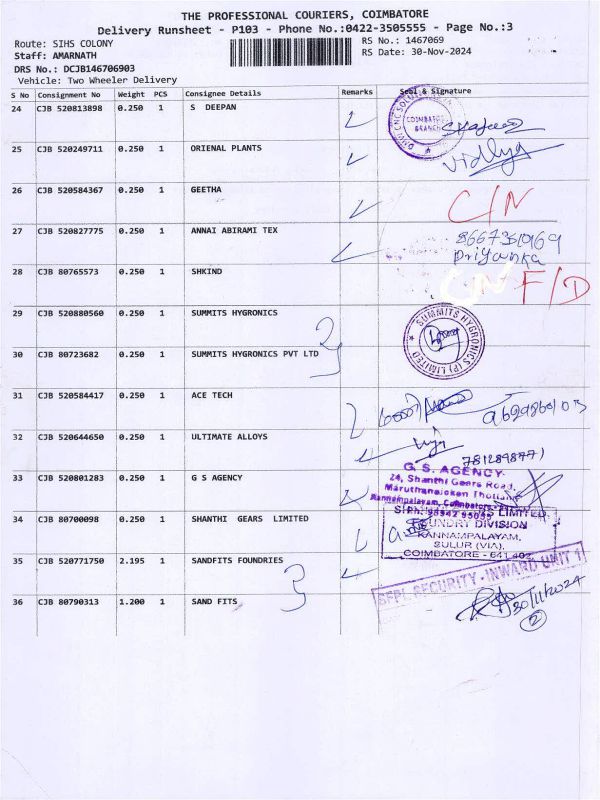 THE PROFESSIONAL COURIERS, COIMBATORE
Delivery Runsheet - P103 - Phone No.:0422-3505555 - Page No.:3
Route: SIHS COLONY
RS No.: 1467069
Staff: AMARNATH
RS Date: 30-Nov-2024
DRS No.: DCJB146706903
Vehicle: Two Wheeler Delivery
S No Consignment No Weight PCS Consignee Details Remarks Seal & Signature
24 CJB 520813898 0.250 1 S DEEPAN
COIMBATORE BRANCH
25 CJB 520249711 0.250 1 ORIENAL PLANTS
Vidhya
26 CJB 520584367 0.250 1 GEETHA
C/N
27 CJB 520827775 0.250 1 ANNAI ABIRAMI TEX
Priyanka
28 CJB 80765573 0.250 1 SHKIND
F/D
29 CJB 520880560 0.250 1 SUMMITS HYGRONICS
SUMMITS HYGRONICS (P) LIMITED
30 CJB 80723682 0.250 1 SUMMITS HYGRONICS PVT LTD
31 CJB 520584417 0.250 1 ACE TECH
32 CJB 520644650 0.250 1 ULTIMATE ALLOYS
33 CJB 520801283 0.250 1 G S AGENCY
G.S. AGENCY
24, Shanthi Gears Road,
34 CJB 80700098 0.250 1 SHANTHI GEARS LIMITED
LIMITED
FOUNDRY DIVISION
KANNAMPALAYAM,
SULUR (VIA),
COIMBATORE - 641 402
35 CJB 520771750 2.195 1 SANDFITS FOUNDRIES
SFPL SECURITY - INWARD UNIT 1
36 CJB 80790313 1.200 1 SAND FITS
30/11/2024
2